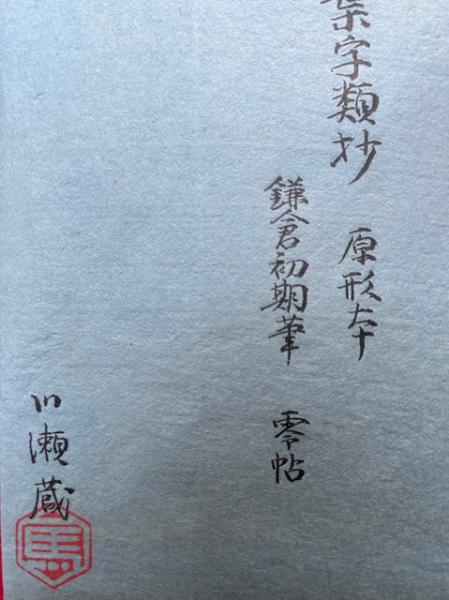 字類抄 原形本
鎌倉初期筆 零帖
川瀬蔵
馬